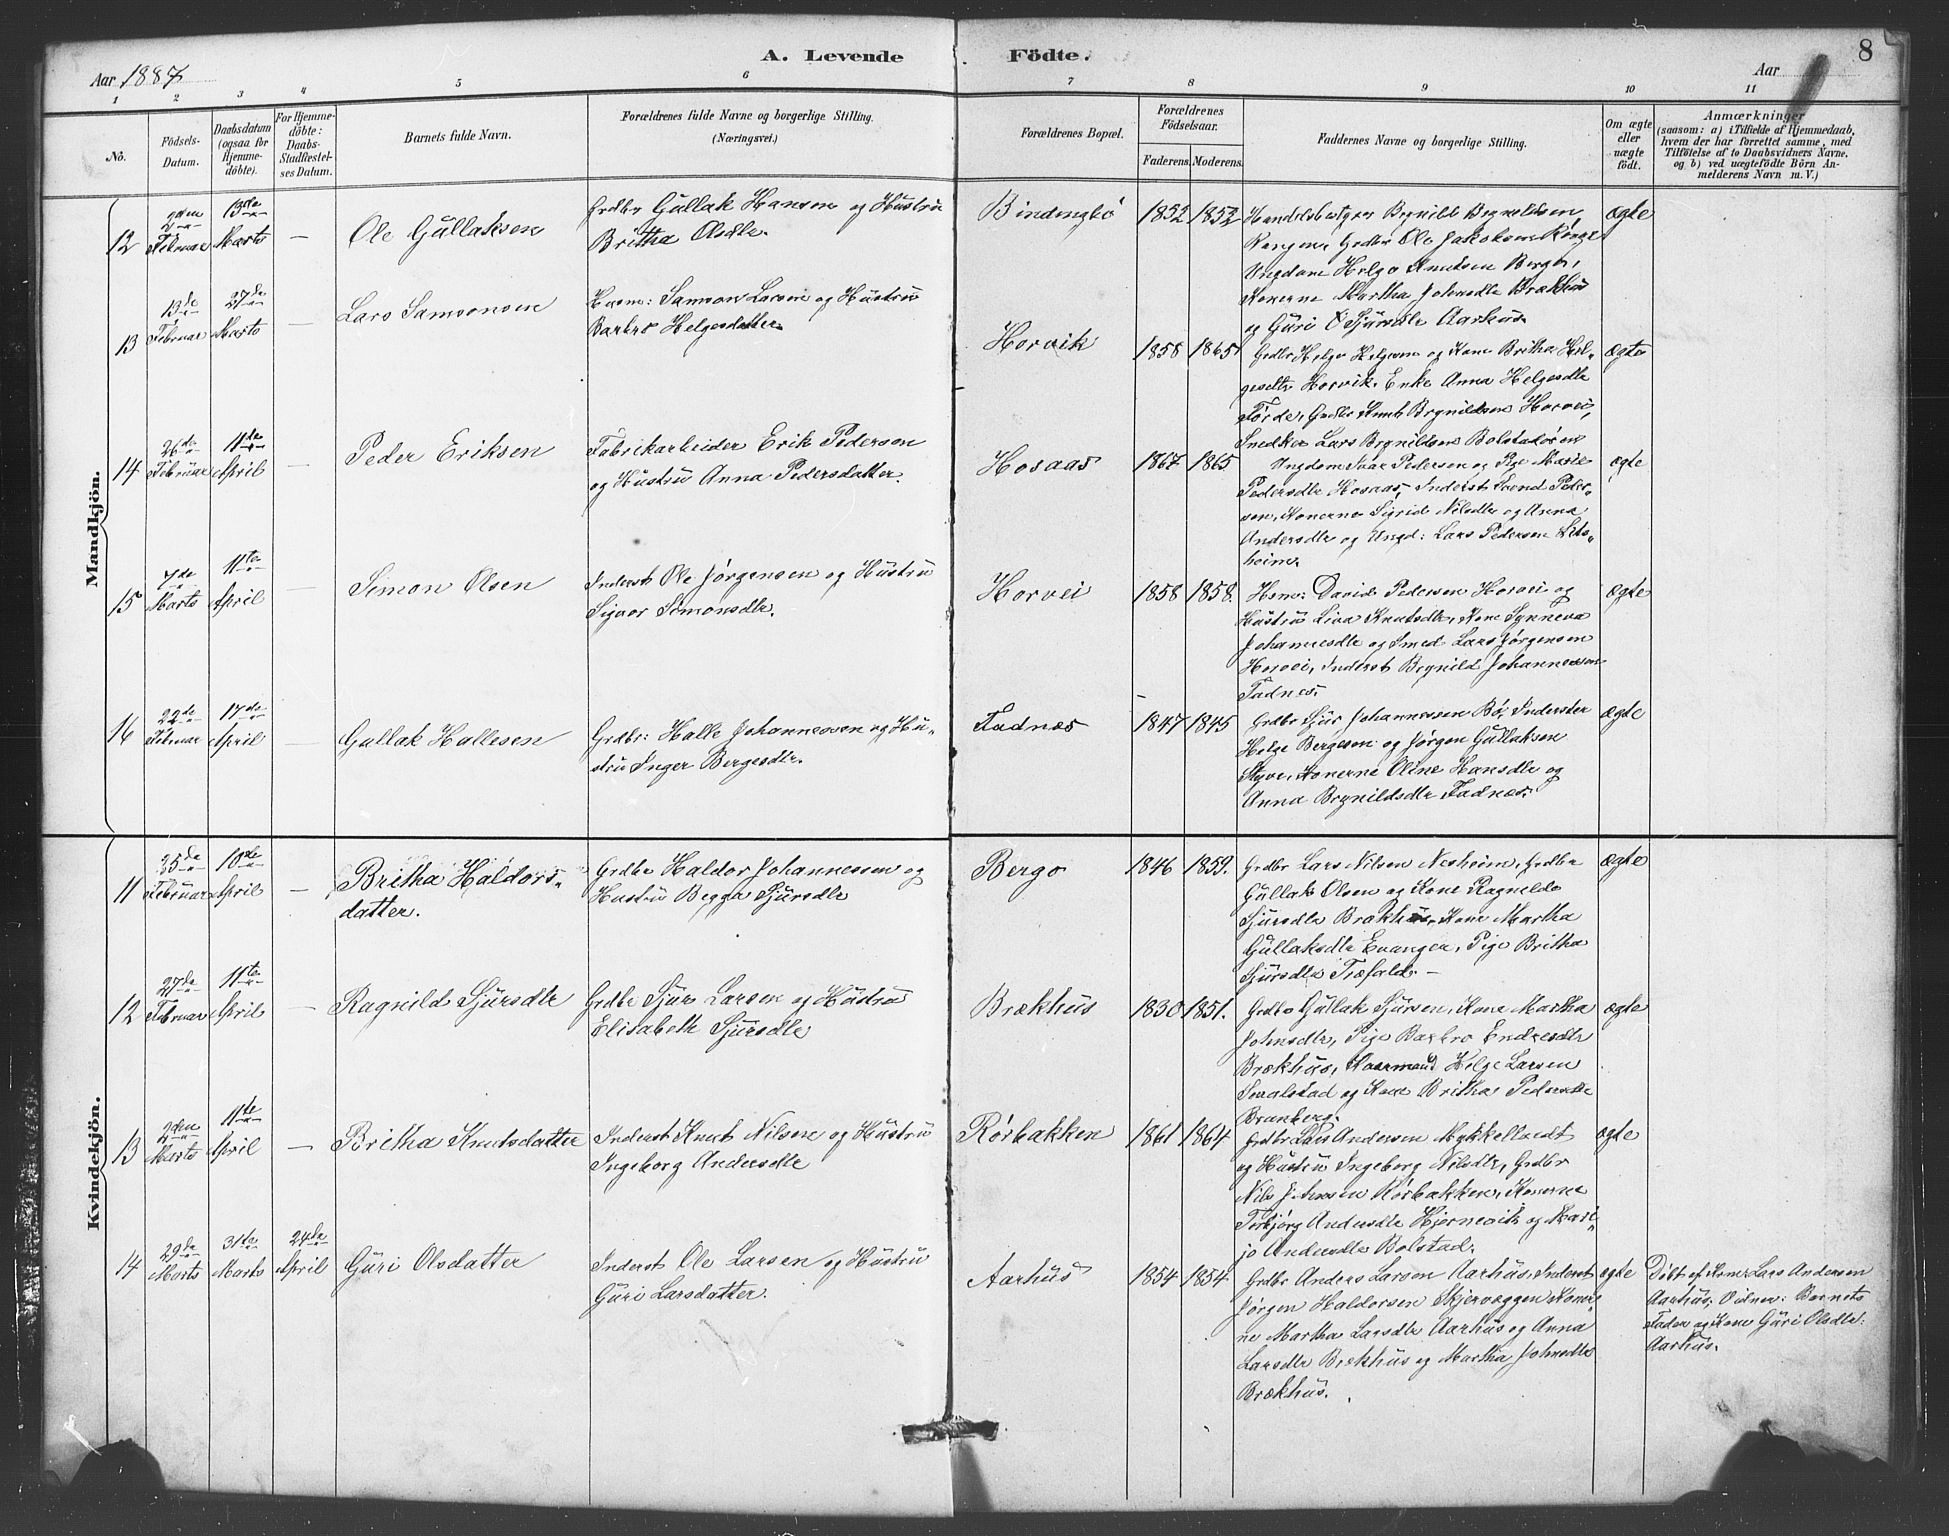 A. Levende Födte.
8
Aar 1887
Aar
1 2 3 4 5 6 7 8 9 10 11
No.
Födsels-Datum.
Daabsdatum (ogsaa for Hjemme-döbte).
For Hjemme-döbte: Daabs-Stadfæstel-ses Datum.
Barnets fulde Navn.
Forældrenes fulde Navne og borgerlige Stilling.
(Næringsvei.)
Forældrenes Bopæl.
Forældrenes Födselsaar.
Faderens. Moderens.
Faddernes Navne og borgerlige Stilling.
Om ægte eller uægte født.
Anmærkninger
(saasom: a) i Tilfælde af Hjemmedaab,
hvem der har forrettet samme, med
Tilföielse af to Daabsvidners Navne.
og b) ved uægtefödte Börn An-
melderens Navn m. V.)
Mandkjön.
12
2den Februar
13de Marts
—
Ole Gullaksen
Grdbr Gullak Hansen og Hustru
Britha Olsdtr.
Bindingbö
1852 1852
Handelsbetjent Brynild Brynildsen
Grdbr Ole Jakobsen
Ungdom Helge Knutsen Berge,
Konerne Martha Johnsdtr Brækhus
og Guri Sjursdtr Aarhus.
ægte
13
13de Februar
27de Marts
—
Lars Samsonsen
Husm: Samson Larsen og Hustru
Barbro Helgesdatter.
Horvik
1858 1865
Grdbr Helge Helgesen og Kone Britha Hel-
gesdtr Horvik. Enke Anna Helgesdtr
Förde, Grdbr Knut Brynildsen Horvei,
Snedker Lars Brynildsen Bolstadören
ægte
14
26de Februar
11te April
—
Peder Eriksen
Fabrikarbeider Erik Pederson
og Hustru Anna Pedersdatter.
Hosaas
1867 1865
Ungdom Ivar Pedersen og Pige Marie
Pedersdtr Hosaas, Inderst Svend Peder-
sen, Konerne Sigrid Nilsdtr og Anna
Andersdtr og Ungd: Lars Pedersen
heim.
ægte
15
7de Marts
11te April
—
Simon Olsen
Inderst Ole Jörgensen og Hustru
Sigvor Simonsdtr.
Horvei
1858 1858.
Husm: David Pedersen Horvei og
Hustru Liva Knutsdtr, Kone Synneva
Johannesdtr og Smed Lars Jörgensen
Horvei, Inderst Brynild Johannessen
Fadnes.
ægte
16
22de Februar
17de April
—
Gullak Hallesen
Grdbr: Halle Johannessen og Hu-
stru Inger Bergesdtr.
Fadnæs
1847 1845
Grdbr Sjur Johannessen Bö, Inderster
Helge Bergesen og Jörgen Gullaksen
Styve, Konerne Oline Hansdtr og
Anna Brynildsdtr Fadnæs.
ægte
Kvindekjön.
11
25de Februar
10de April
—
Britha Haldors-
datter.
Grdbr Haldor Johannessen og
Hustru Begga Sjursdtr
Berge
1846 1859.
Grdbr Lars Nilsen Nesheim, Grdbr
Gullak Olsen og Kone Ragnilde
Sjursdtr Brækhus, Kone Martha
Gullaksdtr Evanger, Pige Britha
Sjursdtr Træfald. —
ægte
12
27de Februar
11te April
—
Ragnild Sjursdtr
Grdbr Sjur Larsen og Hustru
Elisabeth Sjursdtr
Brækhus
1830 1851.
Grdbr Gullak Sjursen, Kone Martha
Johnsdtr, Pige Barbro Endresdtr
Brækhus, Kaarmand Helge Larsen
og Kone Britha Pedersdtr
Branberg.
ægte
13
2den Marts
11te April
—
Britha Knutsdatter
Inderst Knut Nilsen og Hustru
Ingeborg Andersdtr
Rörbakken
1861 1864
Grdbr Lars Andersen Mykkeltvedt
og Hustru Ingeborg Nilsdtr, Grdbr
Nils Johnsen Rörbakken, Konerne
Torbjörg Andersdtr Hjernevik og Mari-
ja Andersdtr Bolstad.
ægte
14
29de Marts
31te Marts
24de April
Guri Olsdatter
Inderst Ole Larsen og Hustru
Guri Larsdatter.
Aarhus
1854 1854
Grdbr Anders Larsen Aarhus, Inderst
Jörgen Haldorsen Skjervæggen Koner-
ne Martha Larsdtr Aarhus og Anna
Larsdtr Brækhus og Martha Johnsdtr
Brækhus.
ægte
Döbt af Husm Lars Andersen
Aarhus; Vidner: Barnets
Fader og Kone Guri Olsdtr:
Aarhus.